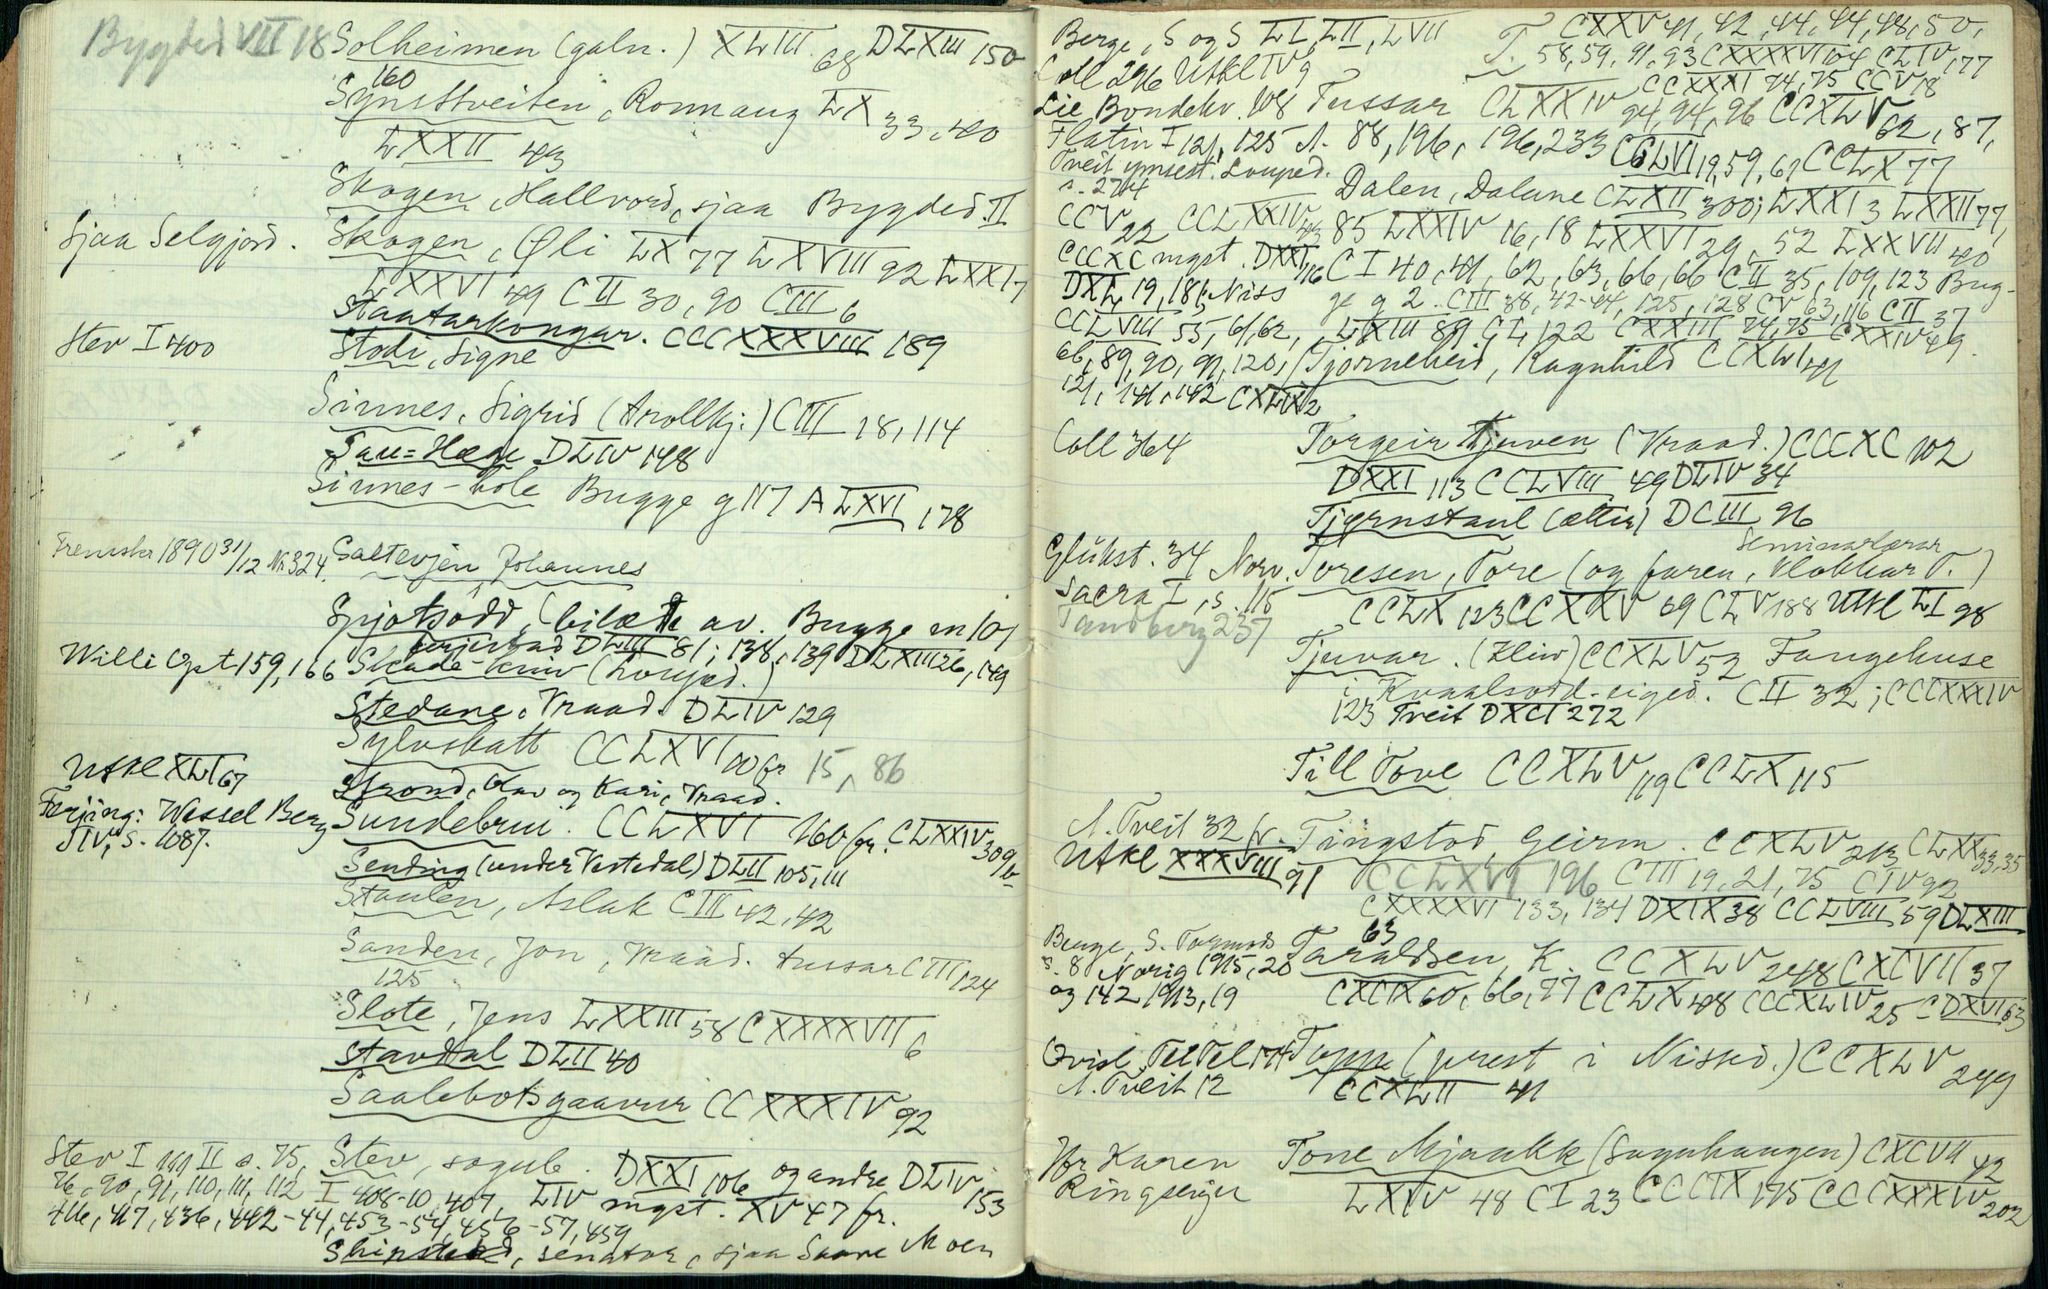 Bygded VII 18 Solheimen (galn.) XLIII 68 DLXIII 150
160
Synsttveiten, Ronnaug LX 33, 40
LXXII 43
Skogen, Hallvord, sjaa Bygded. II
sjaa Selgjord. Skogen, Øli LX 77 LXVIII 92 LXXI 7
LXXVI 49 CII 30, 90 CIII 6
Staatarkongar. CCCXXXVIII 189
Stev I 400 Stodi, Signe
Sinnes, Sigrid (trollkj:) CIII 18, 114
Sau=Hæge DLIV 148
Sinnes-hole Bugge g 117 A LXVI 178
Fremskr 1890 31/12 Nr 324. Saltevjen Johannes
Spjotsodd, (bilæte av. Bugge m 101
DLIII 81; 138, 139 DLXIII 26, 149
Willi Cpt 159, 166 Skade-kniv
Stedane, Vraad. DLIV 129
Sylvskatt CCLXVI 100 fr 15, 86
Utkl XLI 67 Strond, Olav og Kari, Vraad.
Ferjing: Wessel Berg Sundebrui. CCLXVI 160 fr. CLXXIV 309 b
IV, s. 1087.
Sending (under Vestedal) DLII 105, 111
Staulen, Aslak CIII 42, 42
Sanden, Jon, Vraad. tussar CIII 124
125
Slote, Jens LXXIII 58 CXXXXVII 6
Stavdal DLII 40
Saalebotsgaavur CCXXXIV 92
Stev I 161 II s. 75, Stev, sogub. DXXI 106 og andre DLIV 153
76, 90, 91, 110, 111, 112 I 408-10, 407, LIV mgst. XV 47 fr.
416, 417, 436, 442-44, 453-54, 456-57, 459
Skipstad, senator, sjaa Saave Moen
Berge, S og S LI, LII, LVII T. CXXV 41, 42, 44, 44, 48, 50,
Coll 296 Utkl IV 9 58, 59, 91, 93 CXXXXVI 104 CLIV, 77
CCXXXI 74, 75 CCV 18
Lie Bondelv. 108 Tussar CLXXIV 94, 94, 96 CCXLV 62, 87,
Flatin I 121, 125 A. 88, 196, 196, 233 CCLVI 19, 59, 61 CCLX 77
Tveit ymsest. Louped.
s. 274 Dalen, Dalane CLXII 300; LXXI 3 LXXII 77,
CCV 22 CCLXXIV 43 85 LXXIV 16, 18 LXXVI 29, 52 LXXVII 40
CCCXC mgst. DXXI 116 CI 40, 41, 62, 63, 66, 66 CII 35, 109, 123 Bug-
DXL 19, 181, Niss ge g 2. CIII 38, 42-44, 125, 128 CV 63, 116 CII 37
CCLVIII 55, 61, 62, LXIII 89 CL 122 CXXIII 74, 75 CXXIV 49.
66, 89, 90, 91, 120, Tjørneheid, Ragnhild CCXLV 141
121, 141, 142 CXLIX 2
Coll 364 Torgeir Tjuven (Vraad.) CCCXC 102
DXXI 113 CCLVIII 49 DLIV 34
Tjørnstaul (ættir) DCIII 96
Seminarlærar
Glükst. 34 Norv. Toresen, Tore (og faren, Klokkar T.)
Sacra I, s. 115 CCLX 123 CCXXV 69 CLV 188 Utkl LI 98
Tandberg 237
Tjuvar. (Kliv) CCXLV 52 Fangehuse
i Kvaalsodd-eiged. CII 32; CCCXXXIV
123 Tveit DXCI 272
Till Tove CCXLV 119 CCLX 115
A. Tveit 32 fr. Tingstod, Geirm. CCXLV 213 CLXX 33, 35
Utkl XXXVIII 91 CCLXVI 196 CIII 19, 21, 75 CIV 92
CXXXXVI 133, 134 DXIX 38 CCLVIII 59 DLXIII
63
Berge, S. Tormods Taraldsen, K. CCXLV 248 CXCVII 37
s. 8 Norig 1915, 20
og 142 1913, 19 CXCIX 60, 66, 77 CCLX 48 CCCXLIV 25 CDXVI 63
Qvisl. Tel Tel 174 Toppe (prest i Nissed.) CCXLV 249
A. Tveit 12 CCXLII 41
Hr Karen Tone Mjaakk (Sugnhaugen) CXCVII 42
Ringseiger LXIV 48 CI 23 CCCIX 195 CCCXXXIV 202